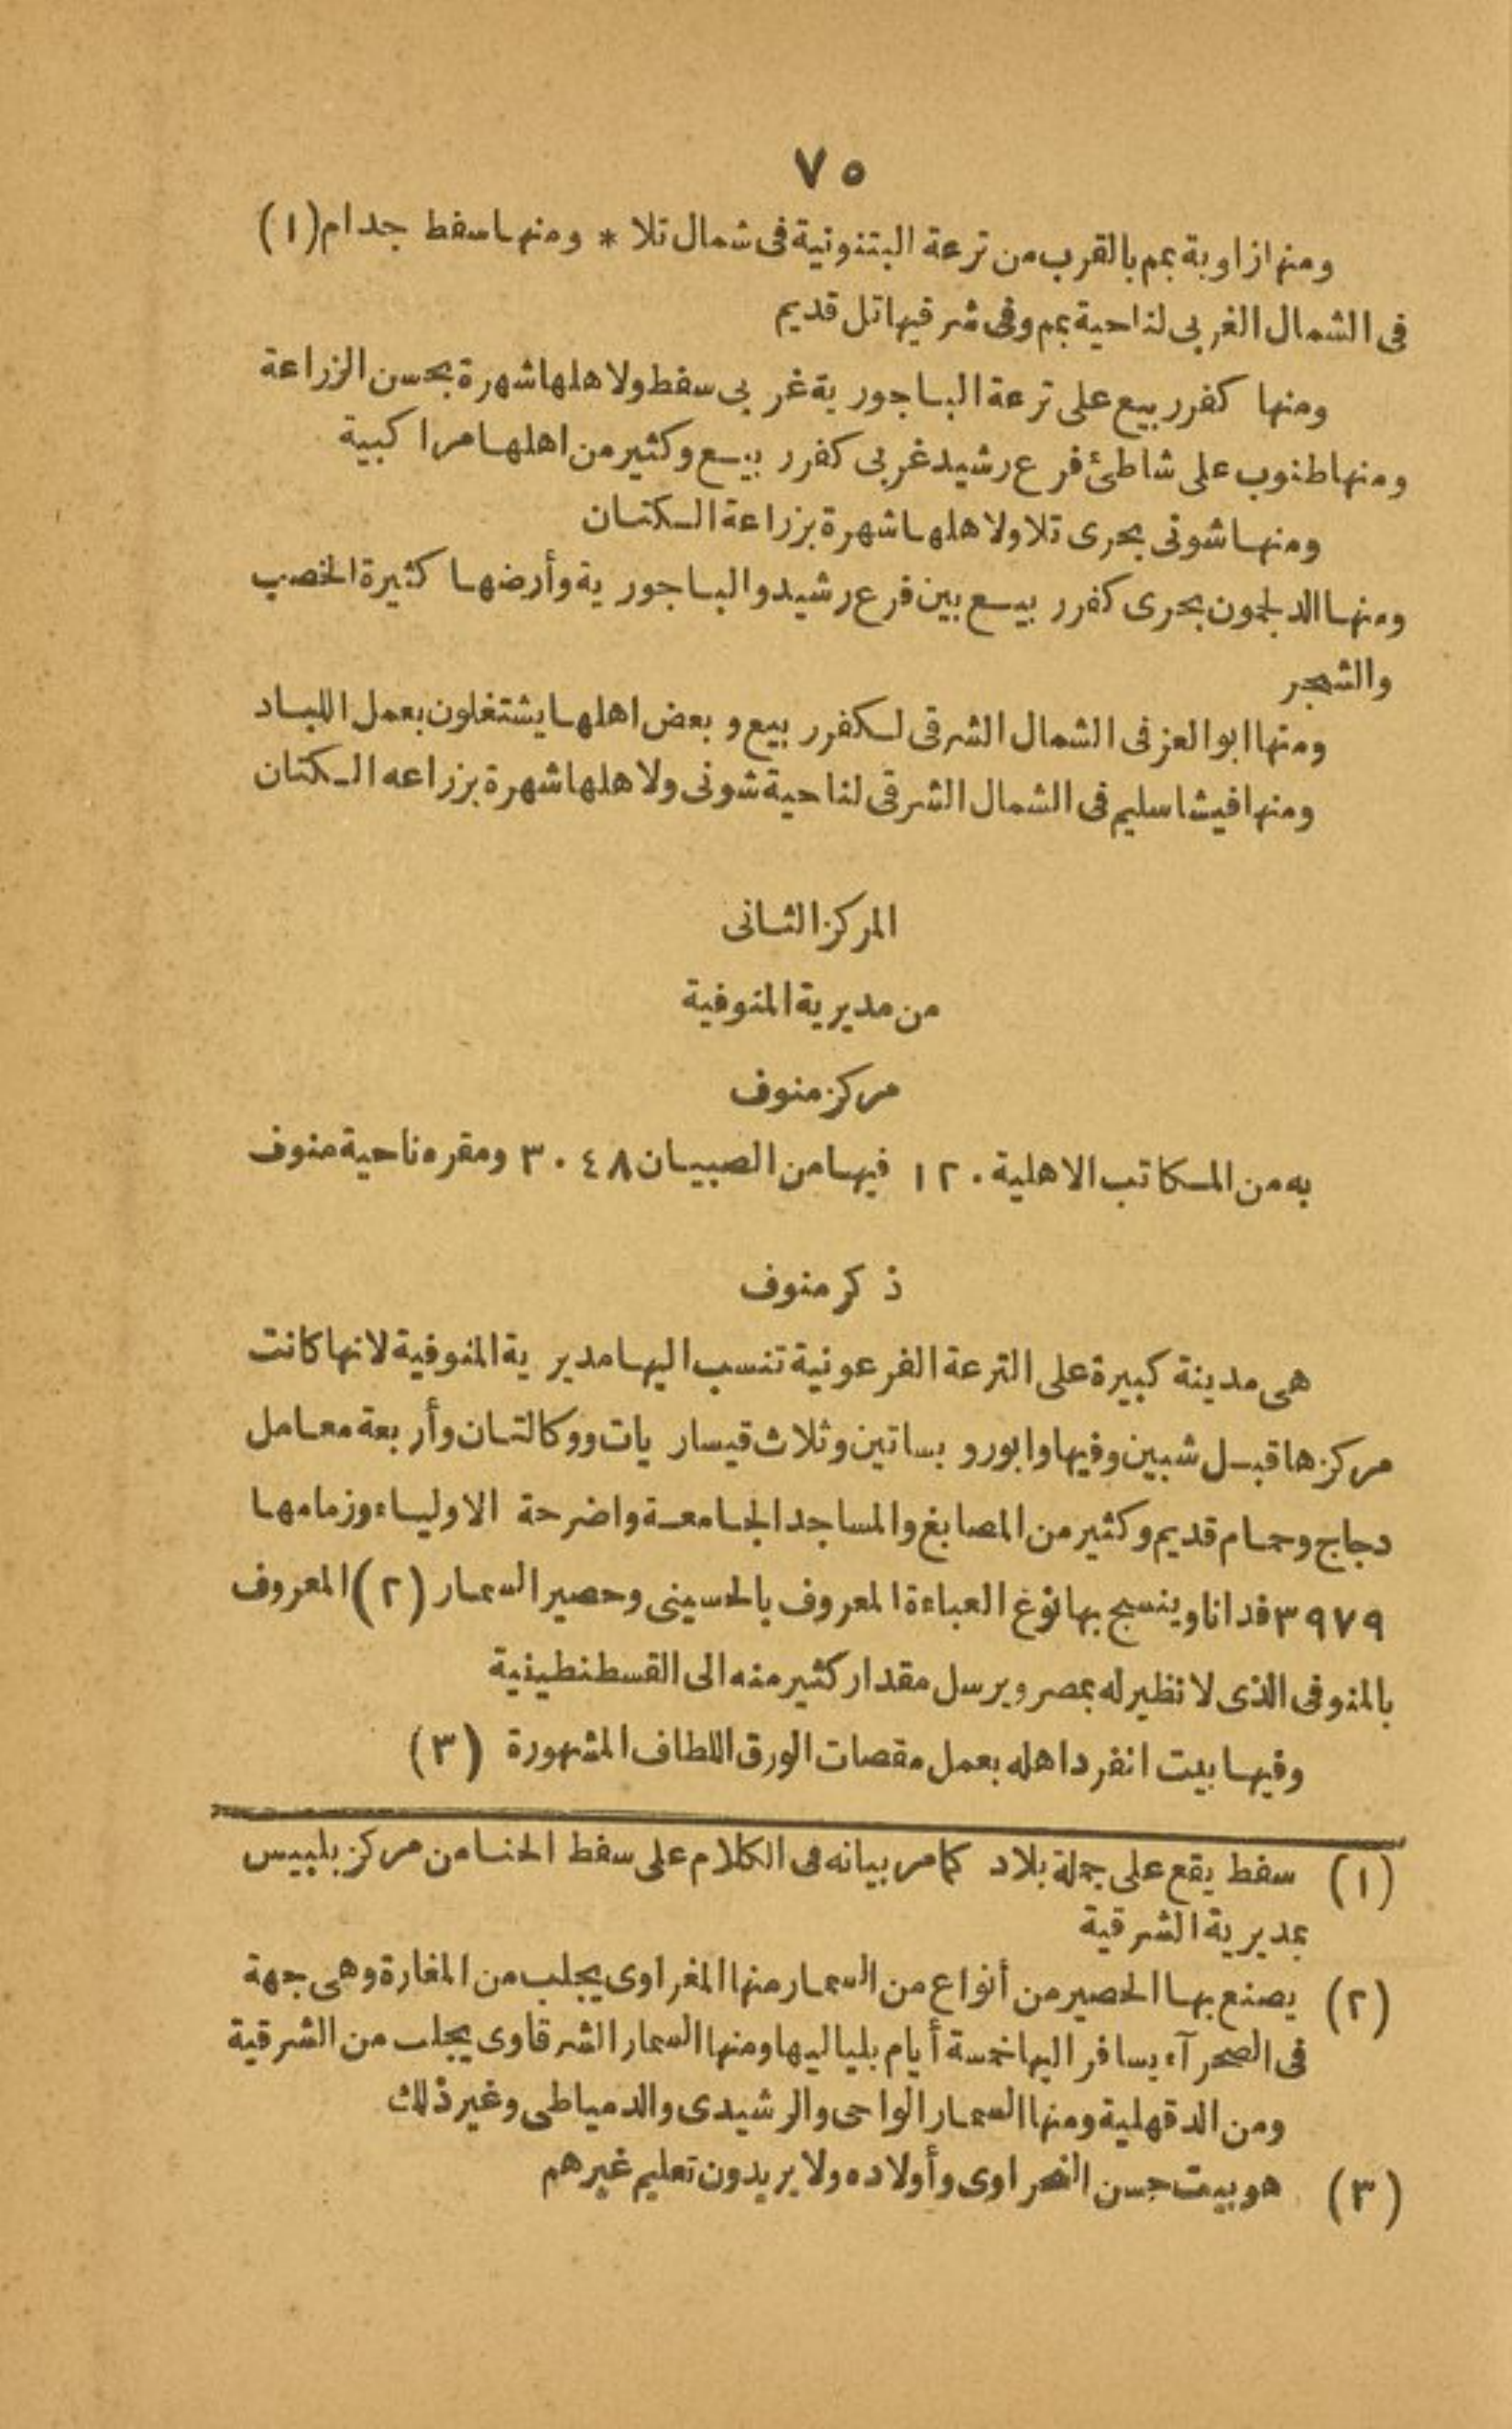 ٧٥
ومنها زاوية بمم بالقرب من ترعة البتنونية فى شمال تلا * ومنها سفط جدام (١)
فى الشمال الغربى لناحية بمم وفى شرقيها تل قديم
ومنها كفر ربيع على ترعة الباجورية غربى سفط ولاهلها شهرة بحسن الزراعة
ومنها طنوب على شاطئ فرع رشيد غربى كفر ربيع وكثير من اهلها مراكبية
ومنها شونى بحرى تلا ولاهلها شهرة بزراعة الكتان
ومنها الدلجمون بحرى كفر ربيع بين فرع رشيد والباجورية وأرضها كثيرة الخصب
والشجر
ومنها ابوالعز فى الشمال الشرقى لكفر ربيع وبعض اهلها يشتغلون بعمل اللباد
ومنها فيشا سليم فى الشمال الشرقى لناحية شونى ولاهلها شهرة بزراعه الكتان
المركز الثانى
من مديرية المنوفية
مركز منوف
به من المكاتب الاهلية ١٢٠ فيها من الصبيان ٣٠٤٨ ومقره ناحية منوف
ذكر منوف
هى مدينة كبيرة على الترعة الفرعونية تنسب اليها مديرية المنوفية لانها كانت
مركزها قبل شبين وفيها وابور و بساتين وثلاث قيساريات ووكالتان وأربعة معامل
دجاج وحمام قديم وكثير من المصابغ والمساجد الجامعة واضرحة الاولياء وزمامها
٣٩٧٩ فدانا وينسج بها نوغ العباءة المعروف بالحسينى وحصير السمار (٢) المعروف
بالمنوفى الذى لا نظير له بمصر ويرسل مقدار كثير منه الى القسطنطينية
وفيها بيت انفرد اهله بعمل مقصات الورق اللطاف المشهورة (٣)
(١) سفط يقع على جملة بلاد كما مر بيانه فى الكلام على سفط الحنا من مركز بلبيس
بمديرية الشرقية
(٢) يصنع بها الحصير من أنواع من السمار منها المغراوى يجلب من المغارة وهى جهة
فى الصحرآء يسافر اليها خمسة أيام بلياليها ومنها السمار الشرقاوى يجلب من الشرقية
ومن الدقهلية ومنها السمار الواحى والرشيدى والدمياطى وغير ذلك
(٣) هو بيت حسن وأولاده ولا يريدون تعليم غيرهم